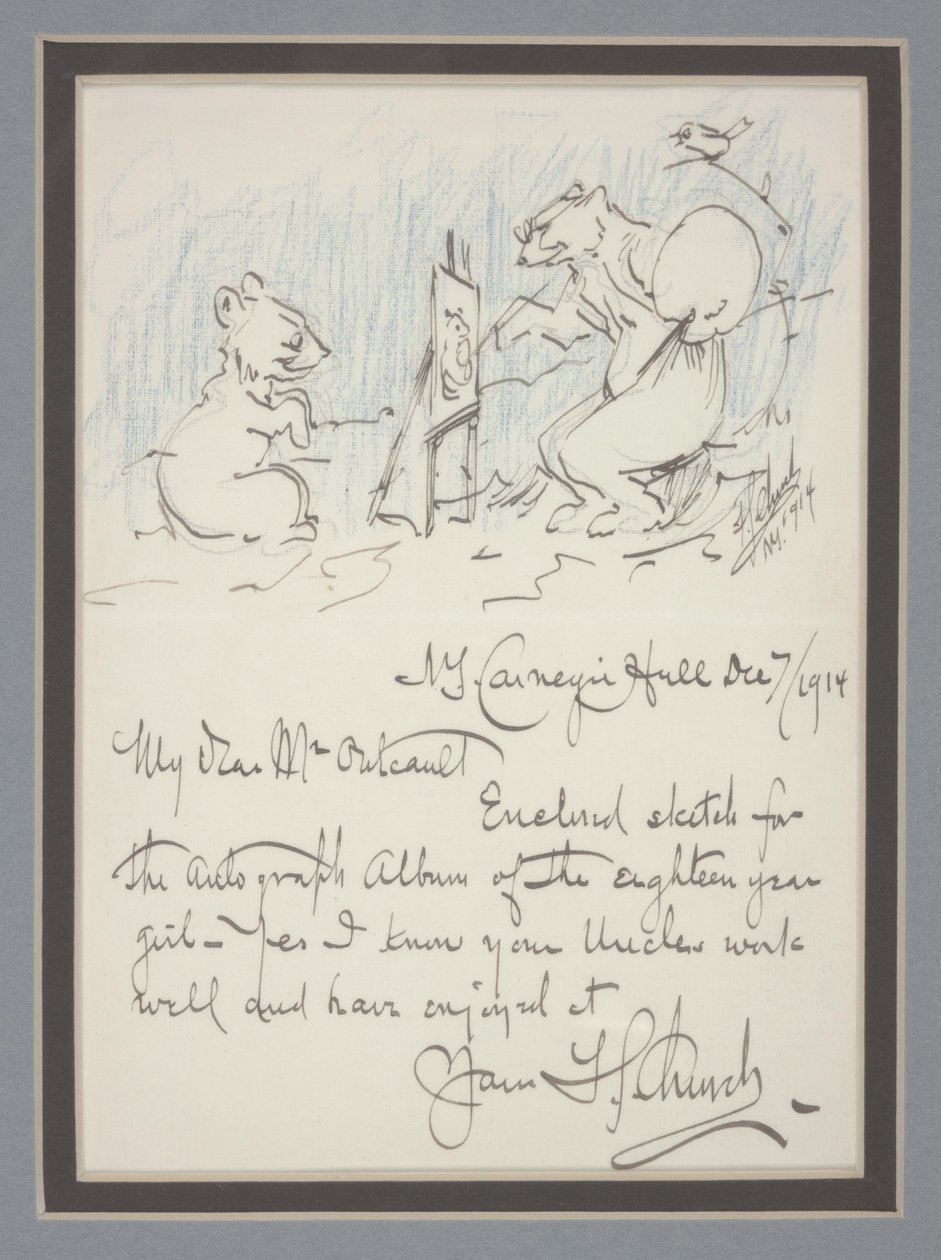 F S Church
N.Y. 1914
N Y. Carnegie Hall Dec 7/1914
My Dear Mr Outcault
Enclosed sketch for
the autograph Album of the eighteen year
girl – Yes I know your Uncles work
well and have enjoyed it
Yours F S Church